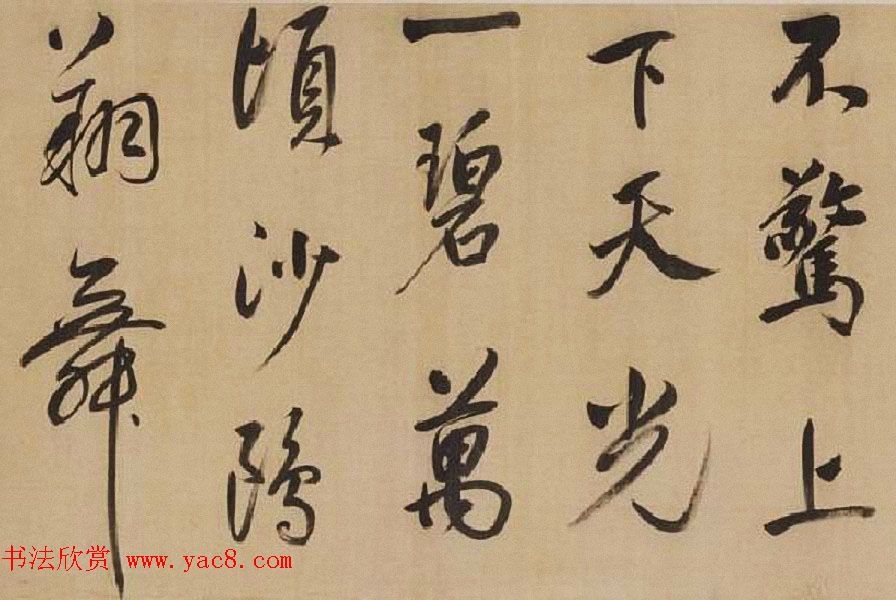 不驚上
下天光
一碧萬
頃沙鷗
翔舞
书法欣赏 www.yac8.com